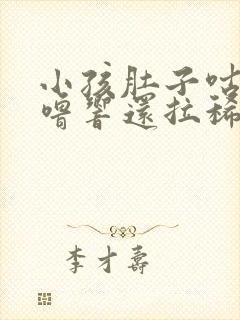 小孩肚子咕
嚕響還拉稀
李才壽